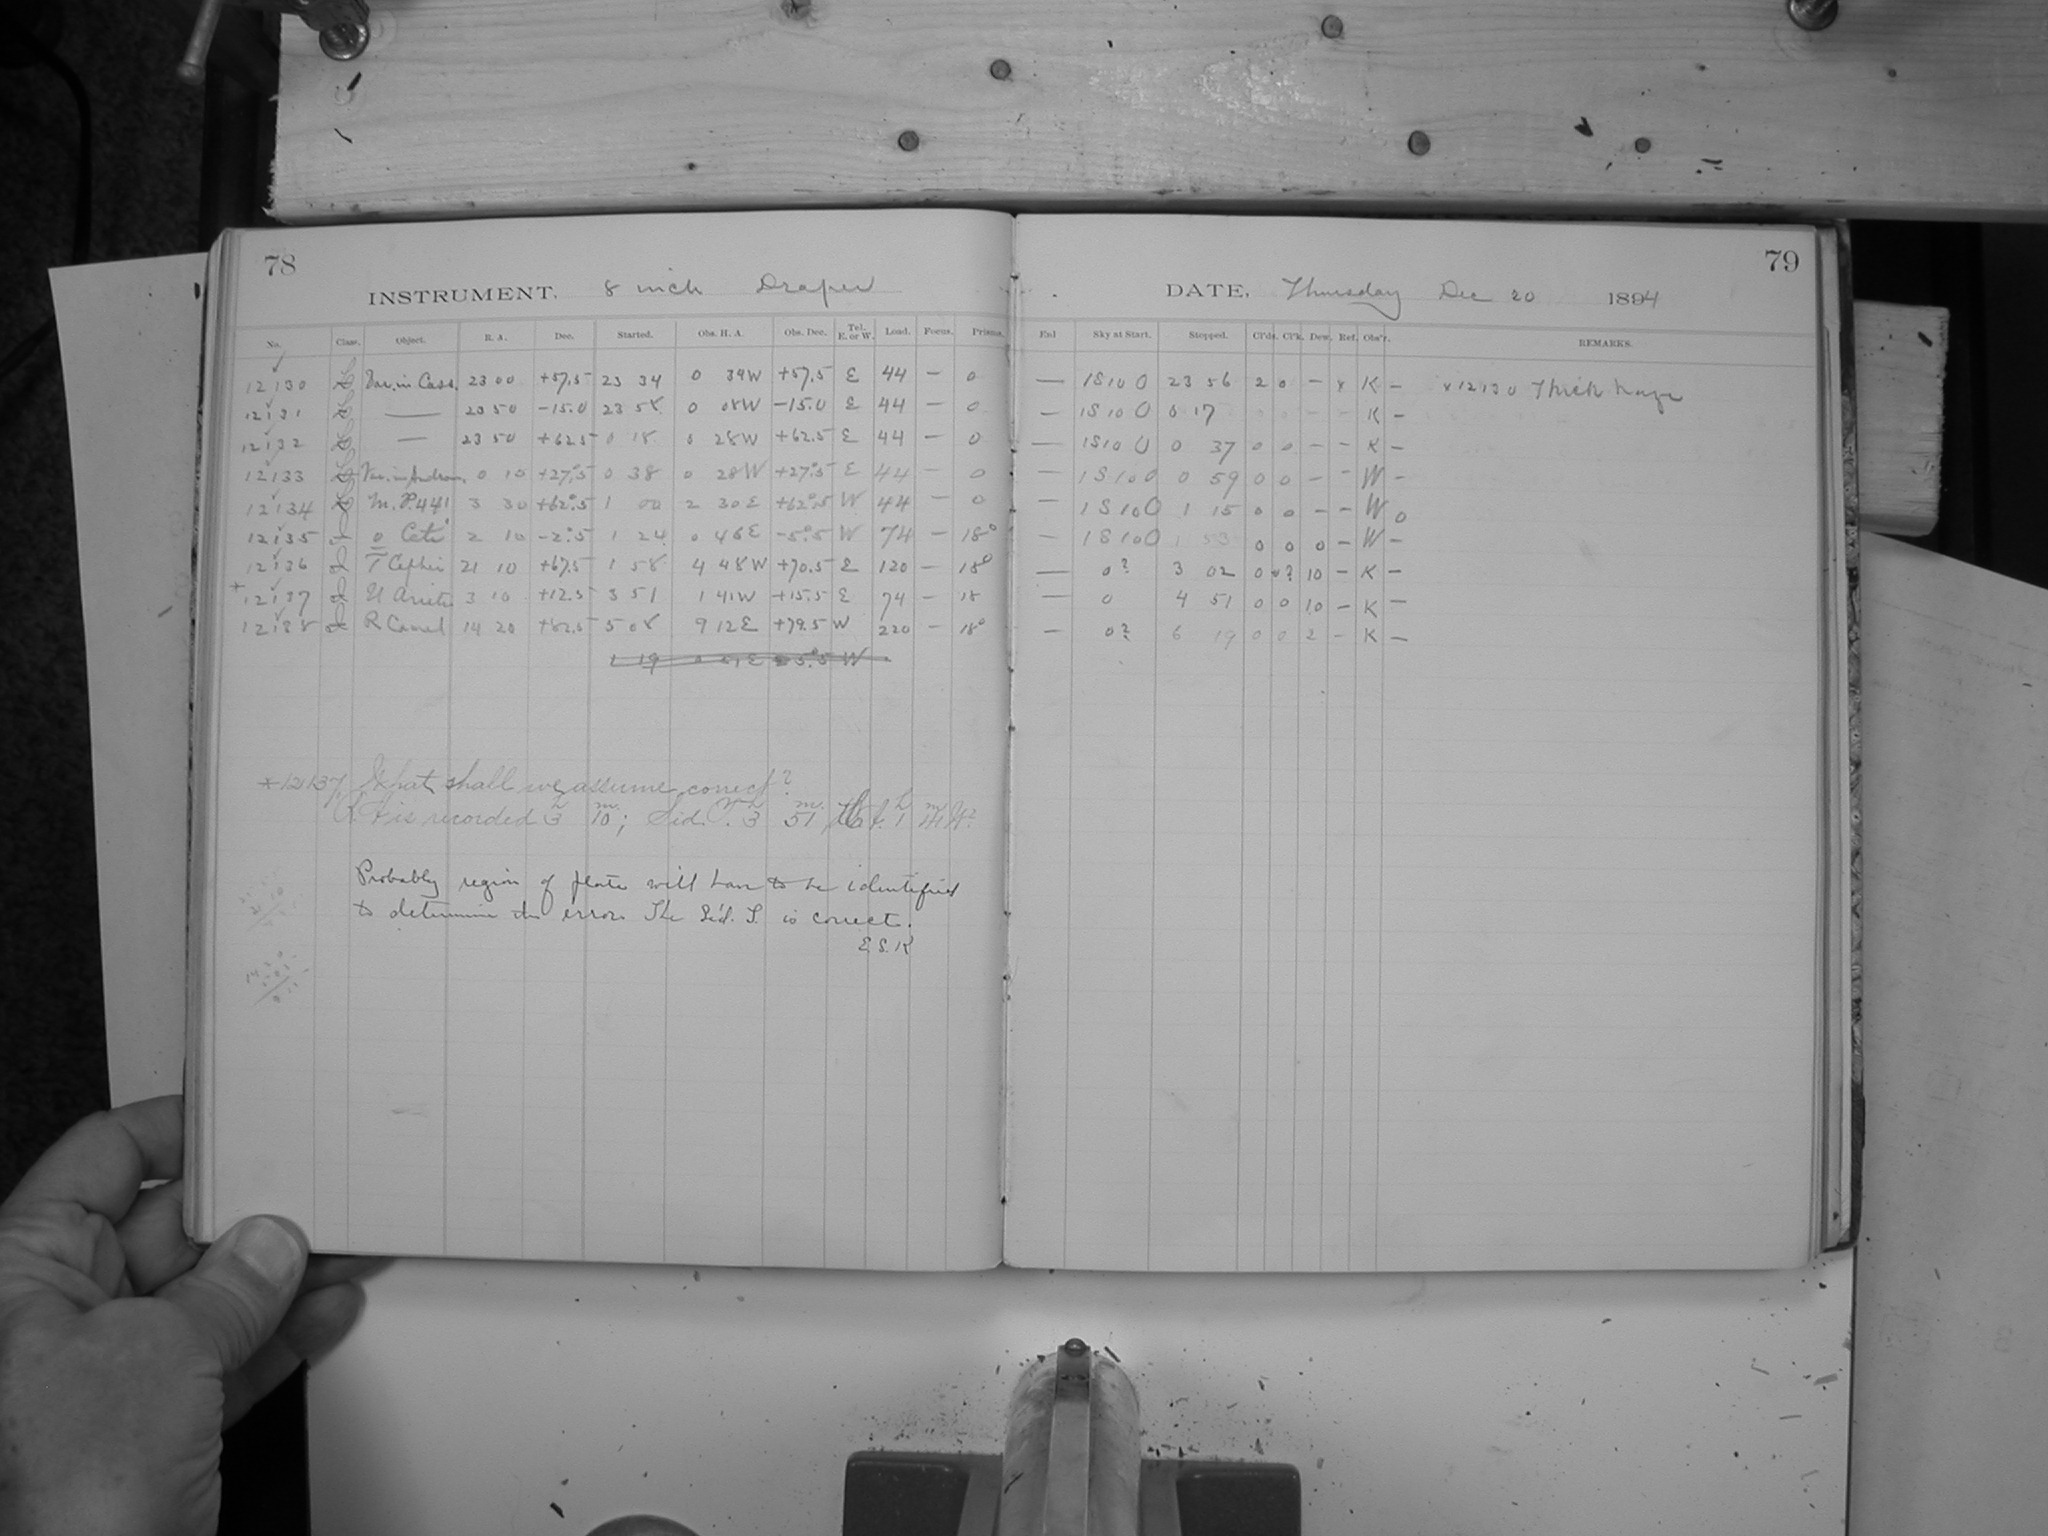 78
INSTRUMENT, 8 inch Draper
No. Class. Object. R. A. Dec. Started. Obs. H. A. Obs. Dec. Tel. E. or W. Load. Focus. Prisms.
12130 Var. in Cass. 23 00 +57.5 23 34 0 34W +57.5 E 44 — 0
12131 — 23 50 -15.0 23 58 0 08W -15.0 E 44 — 0
12132 — 23 50 +62.5 0 18 0 28W +62.5 E 44 — 0
12133 Var. in Androm. 0 10 +27°.5 0 38 0 28W +27°.5 E 44 — 0
12134 M.P. 441 3 30 +62°.5 1 00 2 30E +62°.5 W 44 — 0
12135 o Ceti 2 10 -2°.5 1 24 0 46E -5°.5 W 74 — 18°
12136 T Cephei 21 10 +67.5 1 58 4 48W +70.5 E 120 — 18°
+ 12137 U Arietis 3 10 +12.5 3 51 1 41W +15.5 E 74 — 18
12138 R Camel 14 20 +82.5 5 08 9 12E +79.5 W 220 — 18°
1 19 0 51E -5°.5 W
+12137 What shall we assume correct?
R.A is recorded 3h 10m; Sid. T. 3h 51m, H.A. 1h 41m W?
Probably region of plate will have to be identified
to determine the error. The Sid. T. is correct.
E.S.K
79
DATE, Thursday Dec 20 1894
Enl Sky at Start. Stopped. Cl'ds. Cl'k. Dew. Ref. Obs'r. REMARKS.
— 1S10O 23 56 2 0 — x K — x12130 Thick haze
— 1S10O 0 17 K —
— 1S10O 0 37 0 0 — — K —
— 1S10O 0 59 0 0 — — W —
— 1S10O 1 15 0 0 — — W 0
— 1S10O 1 53 0 0 0 — W —
— 0? 3 02 0 0? 10 — K —
— 0 4 51 0 0 10 — K —
— 0? 6 19 0 0 2 — K —